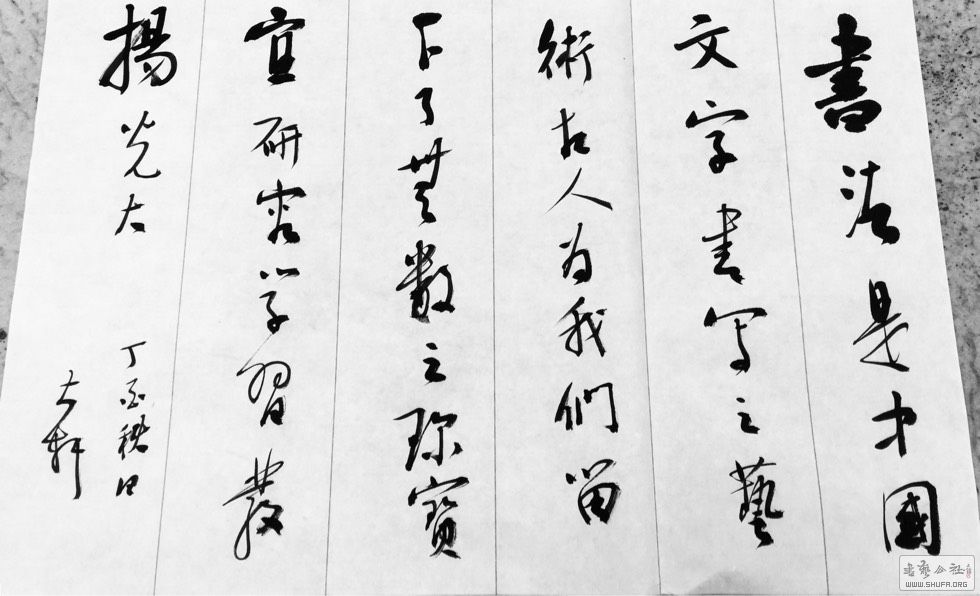 書法是中國
文字書寫之藝
術古人為我們留
下了無數之珍寶
宜研究學習發
揚光大
丁酉秋日
大軒
書藝公社
WWW.SHUFA.ORG